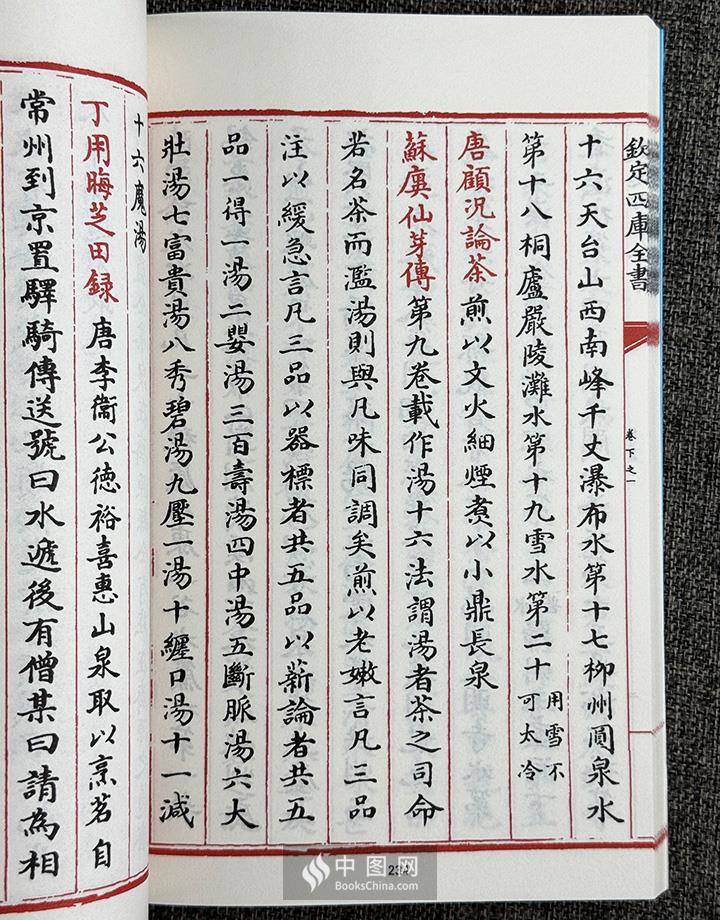 欽定四庫全書
卷下之一
十六天台山西南峰千丈瀑布水第十七柳州圓泉水
第十八桐廬嚴陵灘水第十九雪水第二十用雪不可太冷
唐顧況論茶煎以文火細煙煑以小鼎長泉
蘇廙仙芽傳第九卷載作湯十六法謂湯者茶之司命
若名茶而濫湯則與凡味同調矣煎以老嫩言凡三品
注以緩急言凡三品以器標者共五品以薪論者共五
品一得一湯二嬰湯三百壽湯四中湯五斷脈湯六大
壯湯七富貴湯八秀碧湯九壓一湯十纏口湯十一減
十六魔湯
丁用晦芝田録唐李衞公德裕喜惠山泉取以烹茗自
常州到京置驛騎傳送號曰水遞後有僧某曰請為相
234
中图网
BooksChina.com